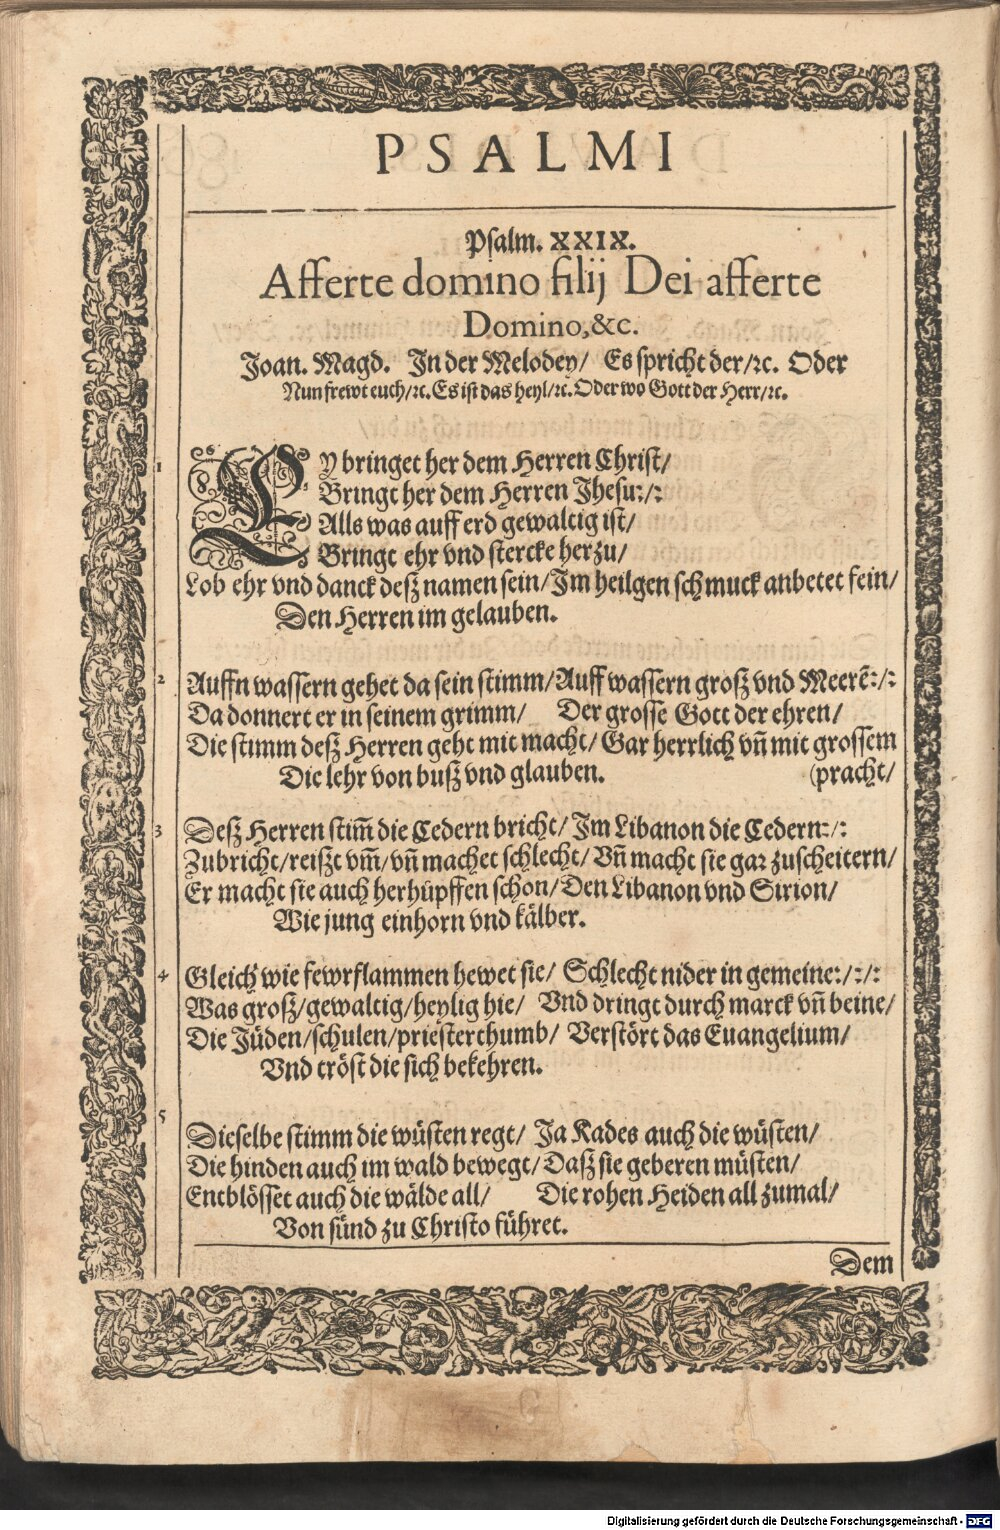 PSALMI
Psalm. XXIX.
Afferte domino filij Dei afferte
Domino, &c.
Joan. Magd. In der Melodey/ Es spricht der/ꝛc. Oder
Nun frewt euch/ꝛc. Es ist das heyl/ꝛc. Oder wo Gott der Herr/ꝛc.
1 EY bringet her dem Herren Christ/
Bringt her dem Herren Jhesu:/:
Alls was auff erd gewaltig ist/
Bringt ehr vnd stercke herzu/
Lob ehr vnd danck desz namen sein/ Im heilgen schmuck anbetet fein/
Den Herren im gelauben.
2 Auffn wassern gehet da sein stimm/ Auff wassern grosz vnd Meerē:/:
Da donnert er in seinem grimm/ Der grosse Gott der ehren/
Die stimm desz Herren geht mit macht/ Gar herrlich vñ mit grossem
Die lehr von busz vnd glauben. (pracht/
3 Desz Herren stim̃ die Cedern bricht/ Im Libanon die Cedern:/:
Zubricht/ reiszt vm̃/ vñ machet schlecht/ Vñ macht sie gar zuscheitern/
Er macht sie auch herhüpffen schon/ Den Libanon vnd Sirion/
Wie jung einhorn vnd kälber.
4 Gleich wie fewrflammen hewet sie/ Schlecht nider in gemeine:/:/:
Was grosz/ gewaltig/ heylig hie/ Vnd dringt durch marck vñ beine/
Die Jüden/ schulen/ priesterthumb/ Verstört das Euangelium/
Vnd tröst die sich bekehren.
5
Dieselbe stimm die wüsten regt/ Ja Kades auch die wüsten/
Die hinden auch im wald bewegt/ Dasz sie geberen müsten/
Entblösset auch die wälde all/ Die rohen Heiden all zumal/
Von sünd zu Christo führet.
Dem
Digitalisierung gefördert durch die Deutsche Forschungsgemeinschaft - DFG